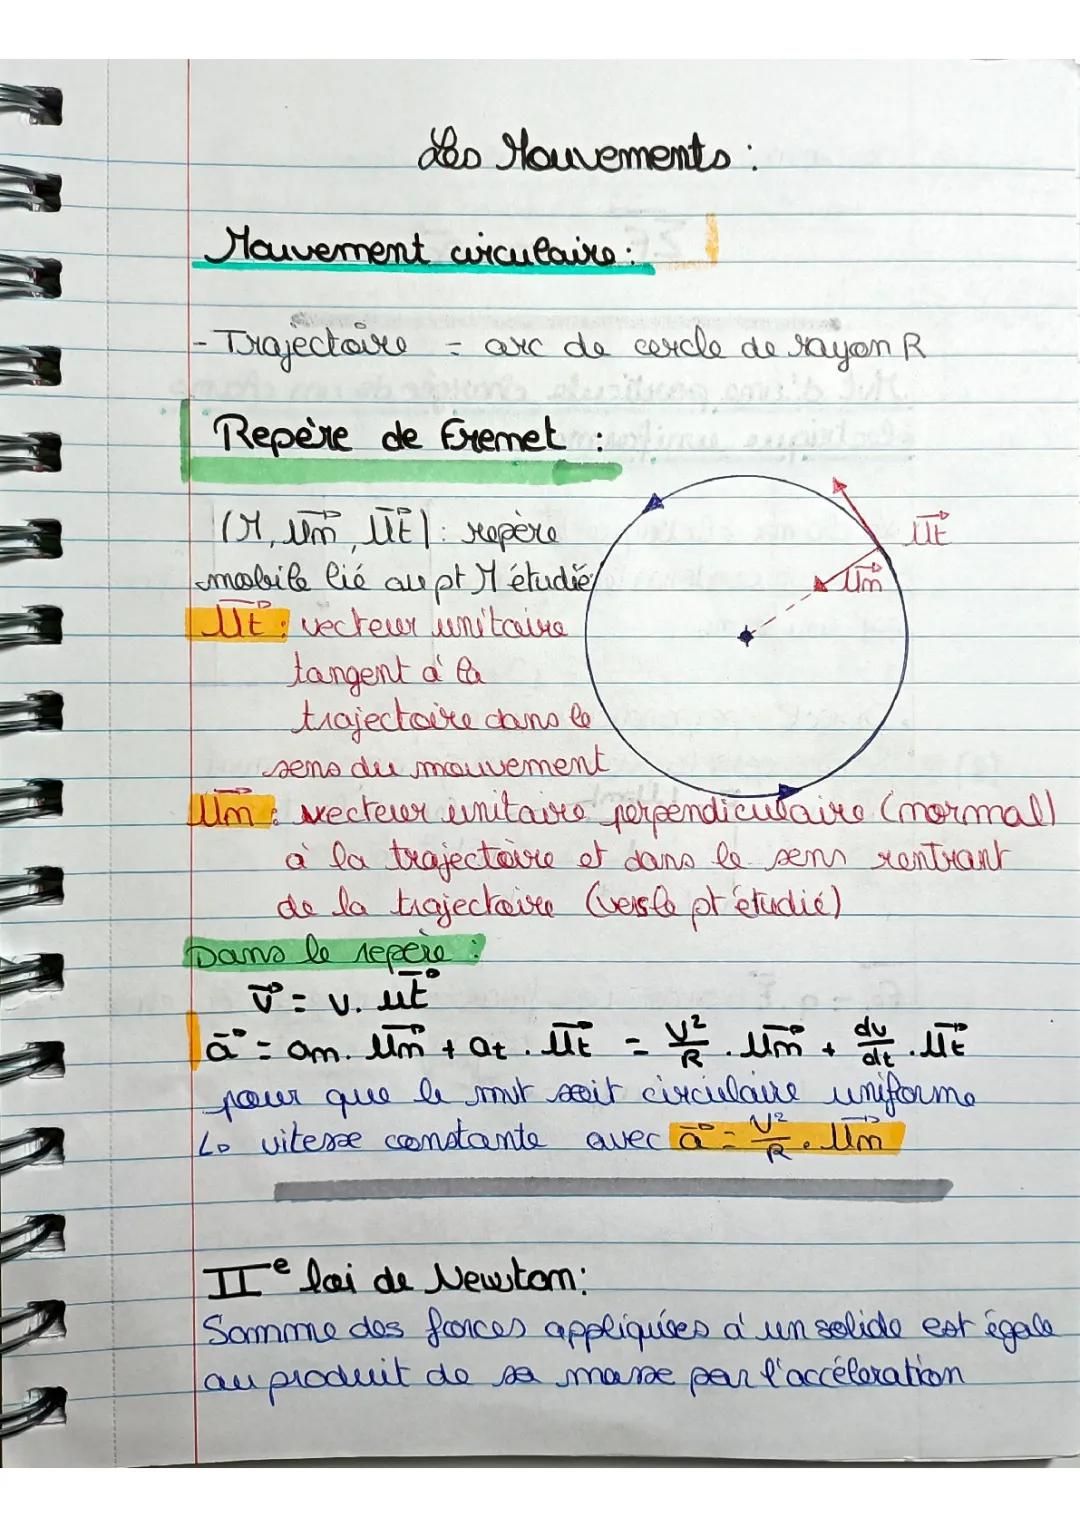 Les Mouvements :
Mouvement circulaire :
- Trajectoire = arc de cercle de rayon R
Repère de Frenet :
(M, un, ut) : repère
mobile lié au pt M étudié
ut : vecteur unitaire
tangent à la
trajectoire dans le
sens du mouvement
ut
un
un : vecteur unitaire perpendiculaire (normal)
à la trajectoire et dans le sens rentrant
de la trajectoire (vers le pt étudié)
Dans le repère :
v⃗ = v. ut⃗
a⃗ = an. un⃗ + at. ut⃗ = v²/R . un⃗ + dv/dt . ut⃗
pour que le mvt soit circulaire uniforme
↳ vitesse constante avec a⃗ = v²/R . un⃗
IIe loi de Newton :
Somme des forces appliquées à un solide est égale
au produit de sa masse par l'accéleration